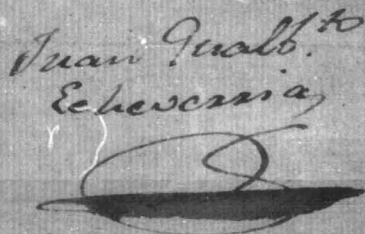 Juan Gualb.to
Echeverria